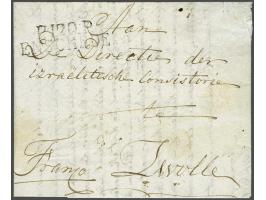 Aan
De Directie der
israëletesche Consistorie
te
Franco Zwolle